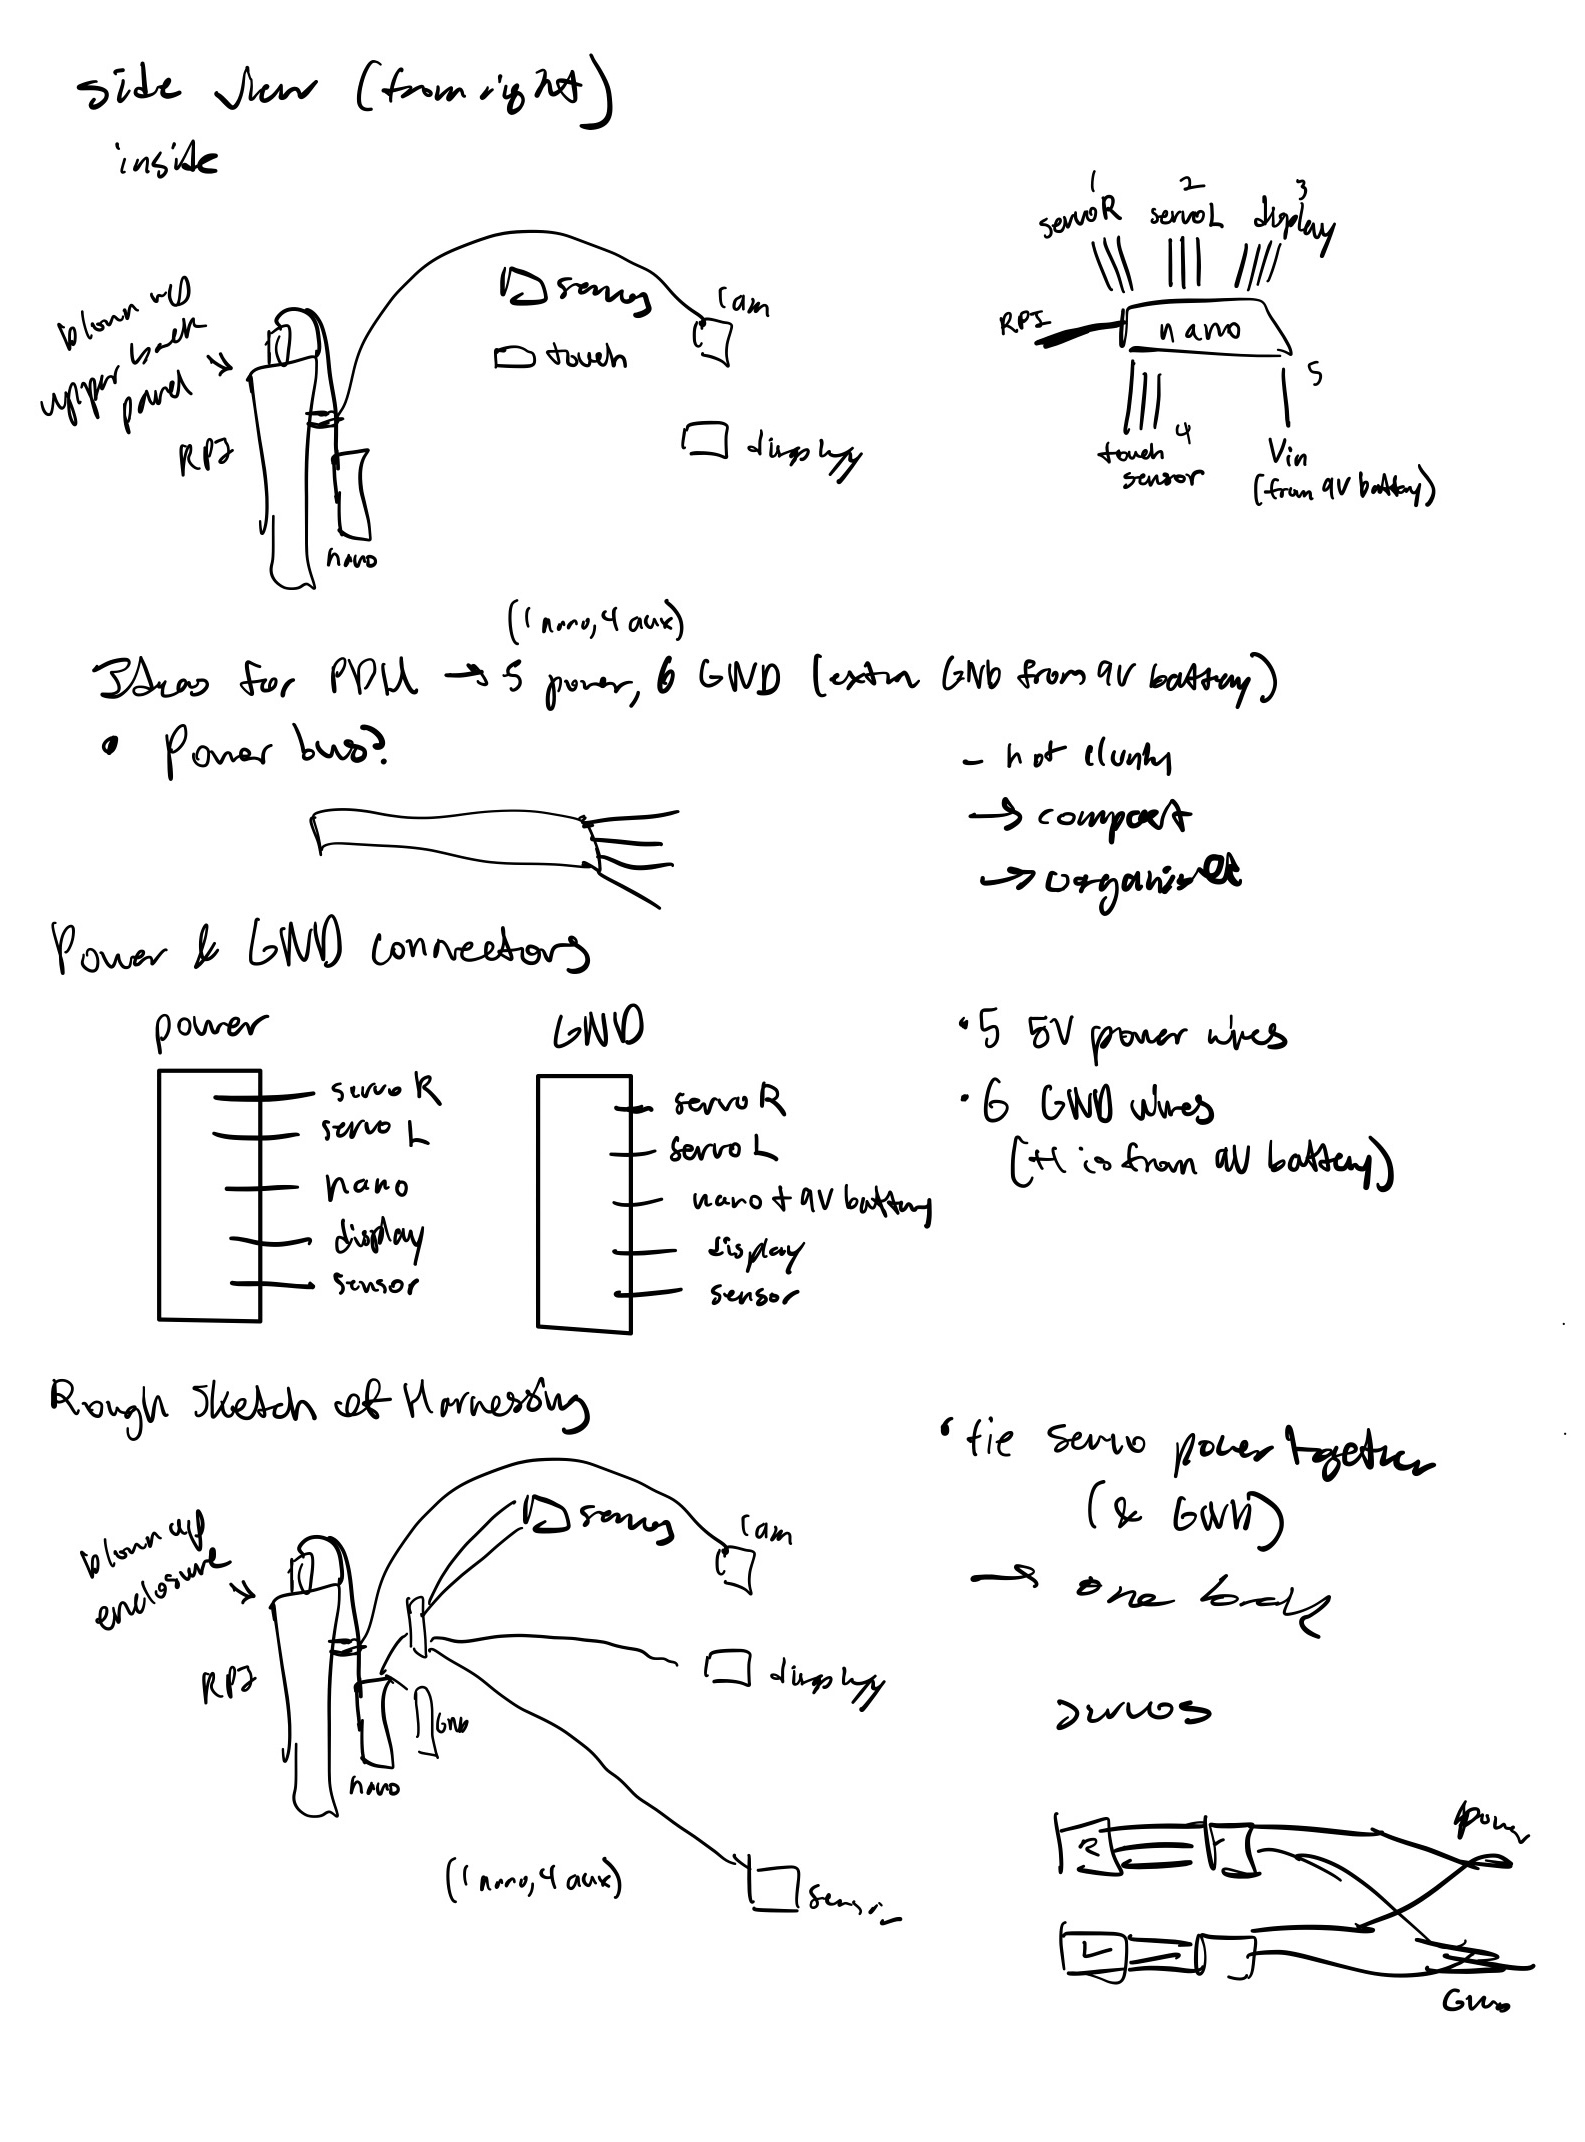 side view (from right)
inside
blown up
upper back
panel
RPI
nano
servos
touch
cam
display
1 2 3
servo R servo L display
RPI
nano
5
4
touch
sensor
Vin
(from 9V battery)
(1 nano, 4 aux)
Ideas for PDU → 5 power, 6 GND (extra GND from 9V battery)
• Power bus?
- not clunky
→ compact
→ organized
Power & GND connectors
power
servo R
servo L
nano
display
sensor
GND
servo R
servo L
nano + 9V battery
display
sensor
• 5 5V power wires
• 6 GND wires
(+1 is from 9V battery)
Rough Sketch of Harnessing
blown up
enclosure
RPI
nano
GND
servos
cam
display
sensor
(1 nano, 4 aux)
• tie servo power together
(& GND)
→ one
servos
R
L
power
GND